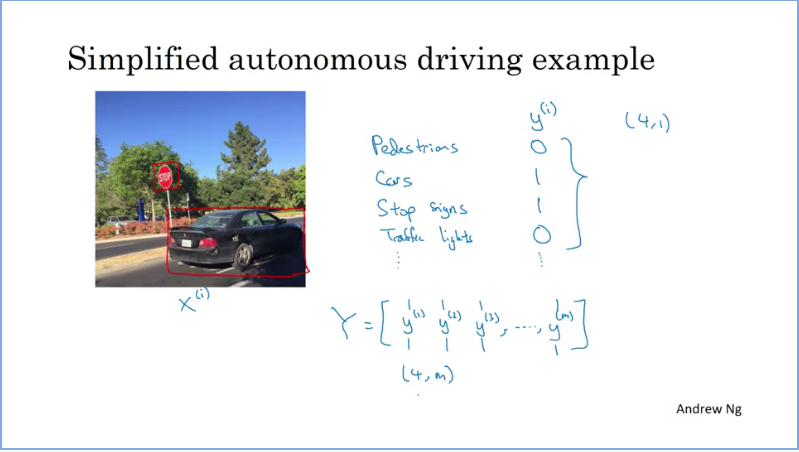 Simplified autonomous driving example
STOP
x^(i)
y^(i) (4,1)
Pedestrians 0
Cars 1
Stop signs 1
Traffic lights 0
⋮ ⋮
Y = [ y^(1) y^(2) y^(3), ...., y^(m) ]
(4, m)
Andrew Ng